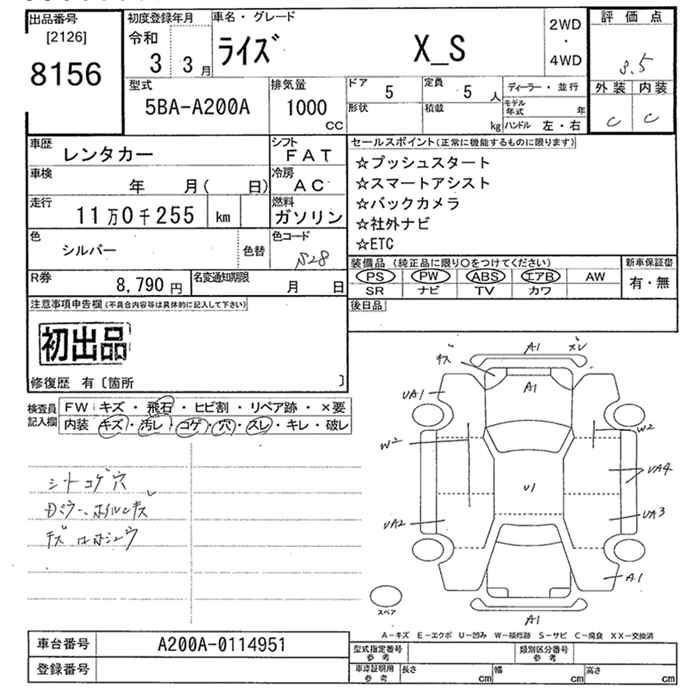 出品番号
[2126]
8156
初度登録年月
令和
3 3月
車名・グレード
ライズ X_S
2WD
・
4WD
評価点
3.5
外装 内装
C C
型式
5BA-A200A
排気量
1000
CC
ドア 5
定員 5 人
形状
積載 kg
ディーラー・並行
モデル年式 年
ハンドル 左・右
車歴
レンタカー
シフト
FAT
車検
年 月( 日)
冷房
AC
走行
11万0千255 km
燃料
ガソリン
色
シルバー
色替
色コード
S28
R券
8,790 円
名変通知期限
月 日
セールスポイント(正常に機能するものに限ります)
☆プッシュスタート
☆スマートアシスト
☆バックカメラ
☆社外ナビ
☆ETC
装備品(純正品に限り○をつけてください)
新車保証書
PS PW ABS エアB AW
SR ナビ TV カワ
有・無
後日品
注意事項申告欄(不具合内容等は具体的に記入して下さい)
初出品
修復歴 有〔箇所 〕
検査員
記入欄
FW キズ・飛石・ヒビ割・リペア跡・×要
内装 キズ・汚レ・コゲ・穴・スレ・キレ・破レ
シートコゲ穴
キズ
A1
ズレ
A1
UA1
W2
W2
U1
UA4
UA2
UA3
A1
A1
スペア
A-キズ E-エクボ U-凹み W-補修跡 S-サビ C-腐食 XX-交換済
車台番号
A200A-0114951
登録番号
型式指定番号
参考
類別区分番号
参考
車庫証明用
参考
長さ cm
幅 cm
高さ cm